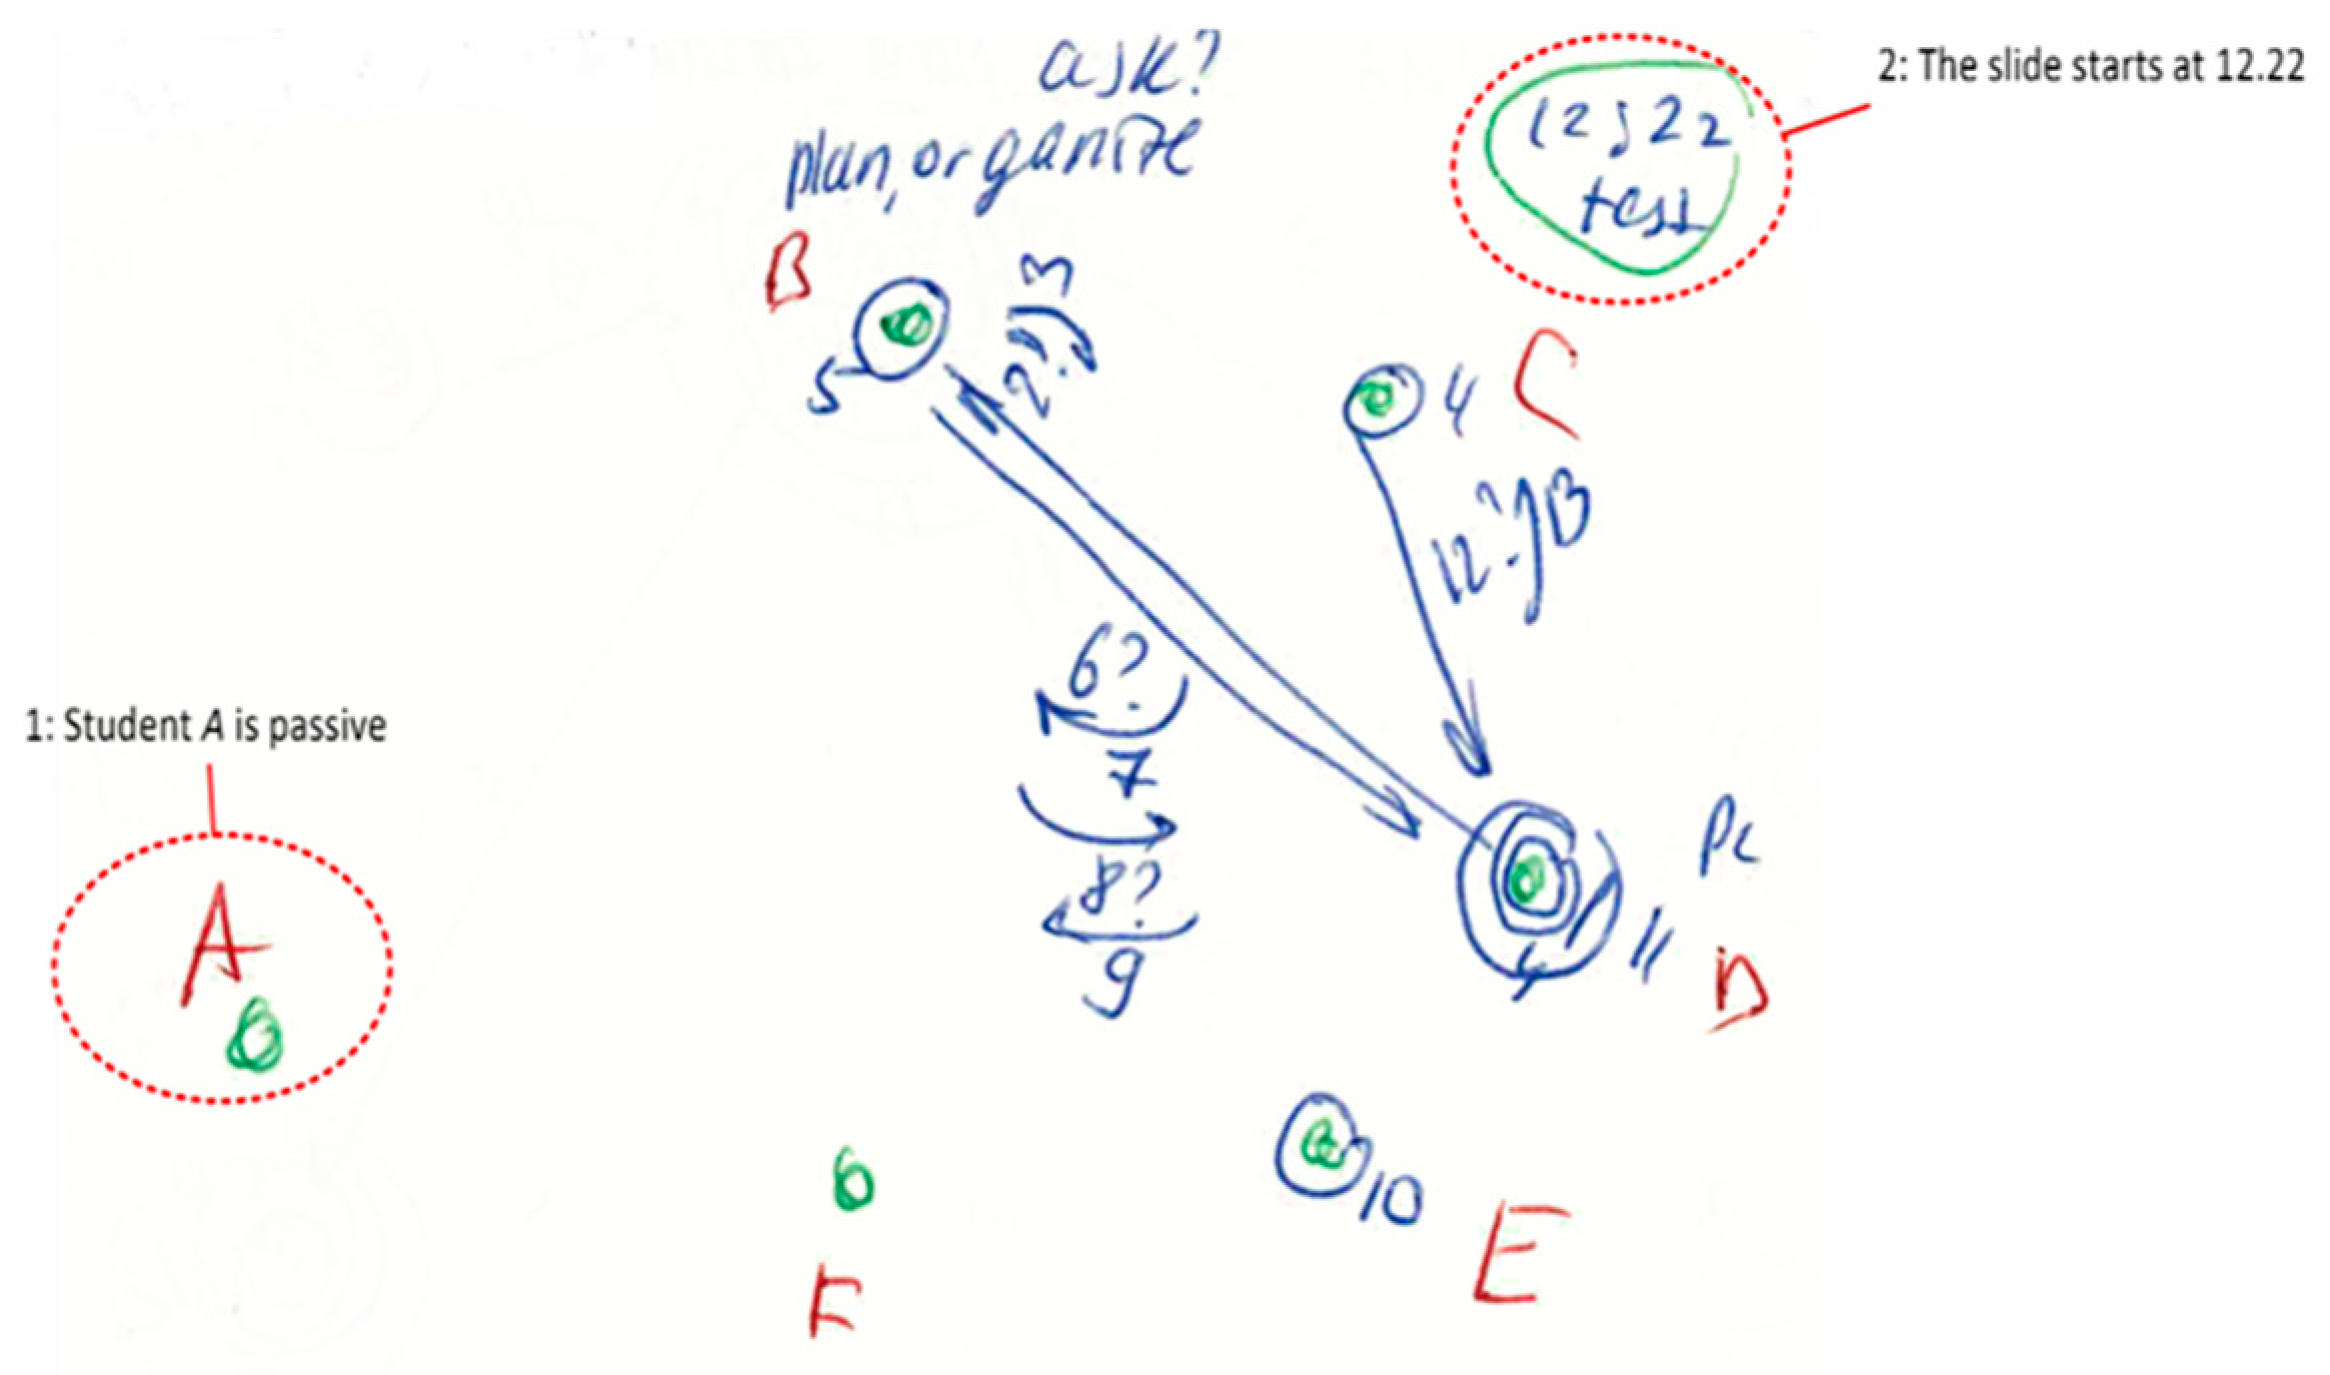 ask?
plan, organize
12;22
tess
2: The slide starts at 12.22
B
3
2?
5
4
C
12?
13
6?
7
1: Student A is passive
8?
9
PC
11
4
D
A
10
E
F